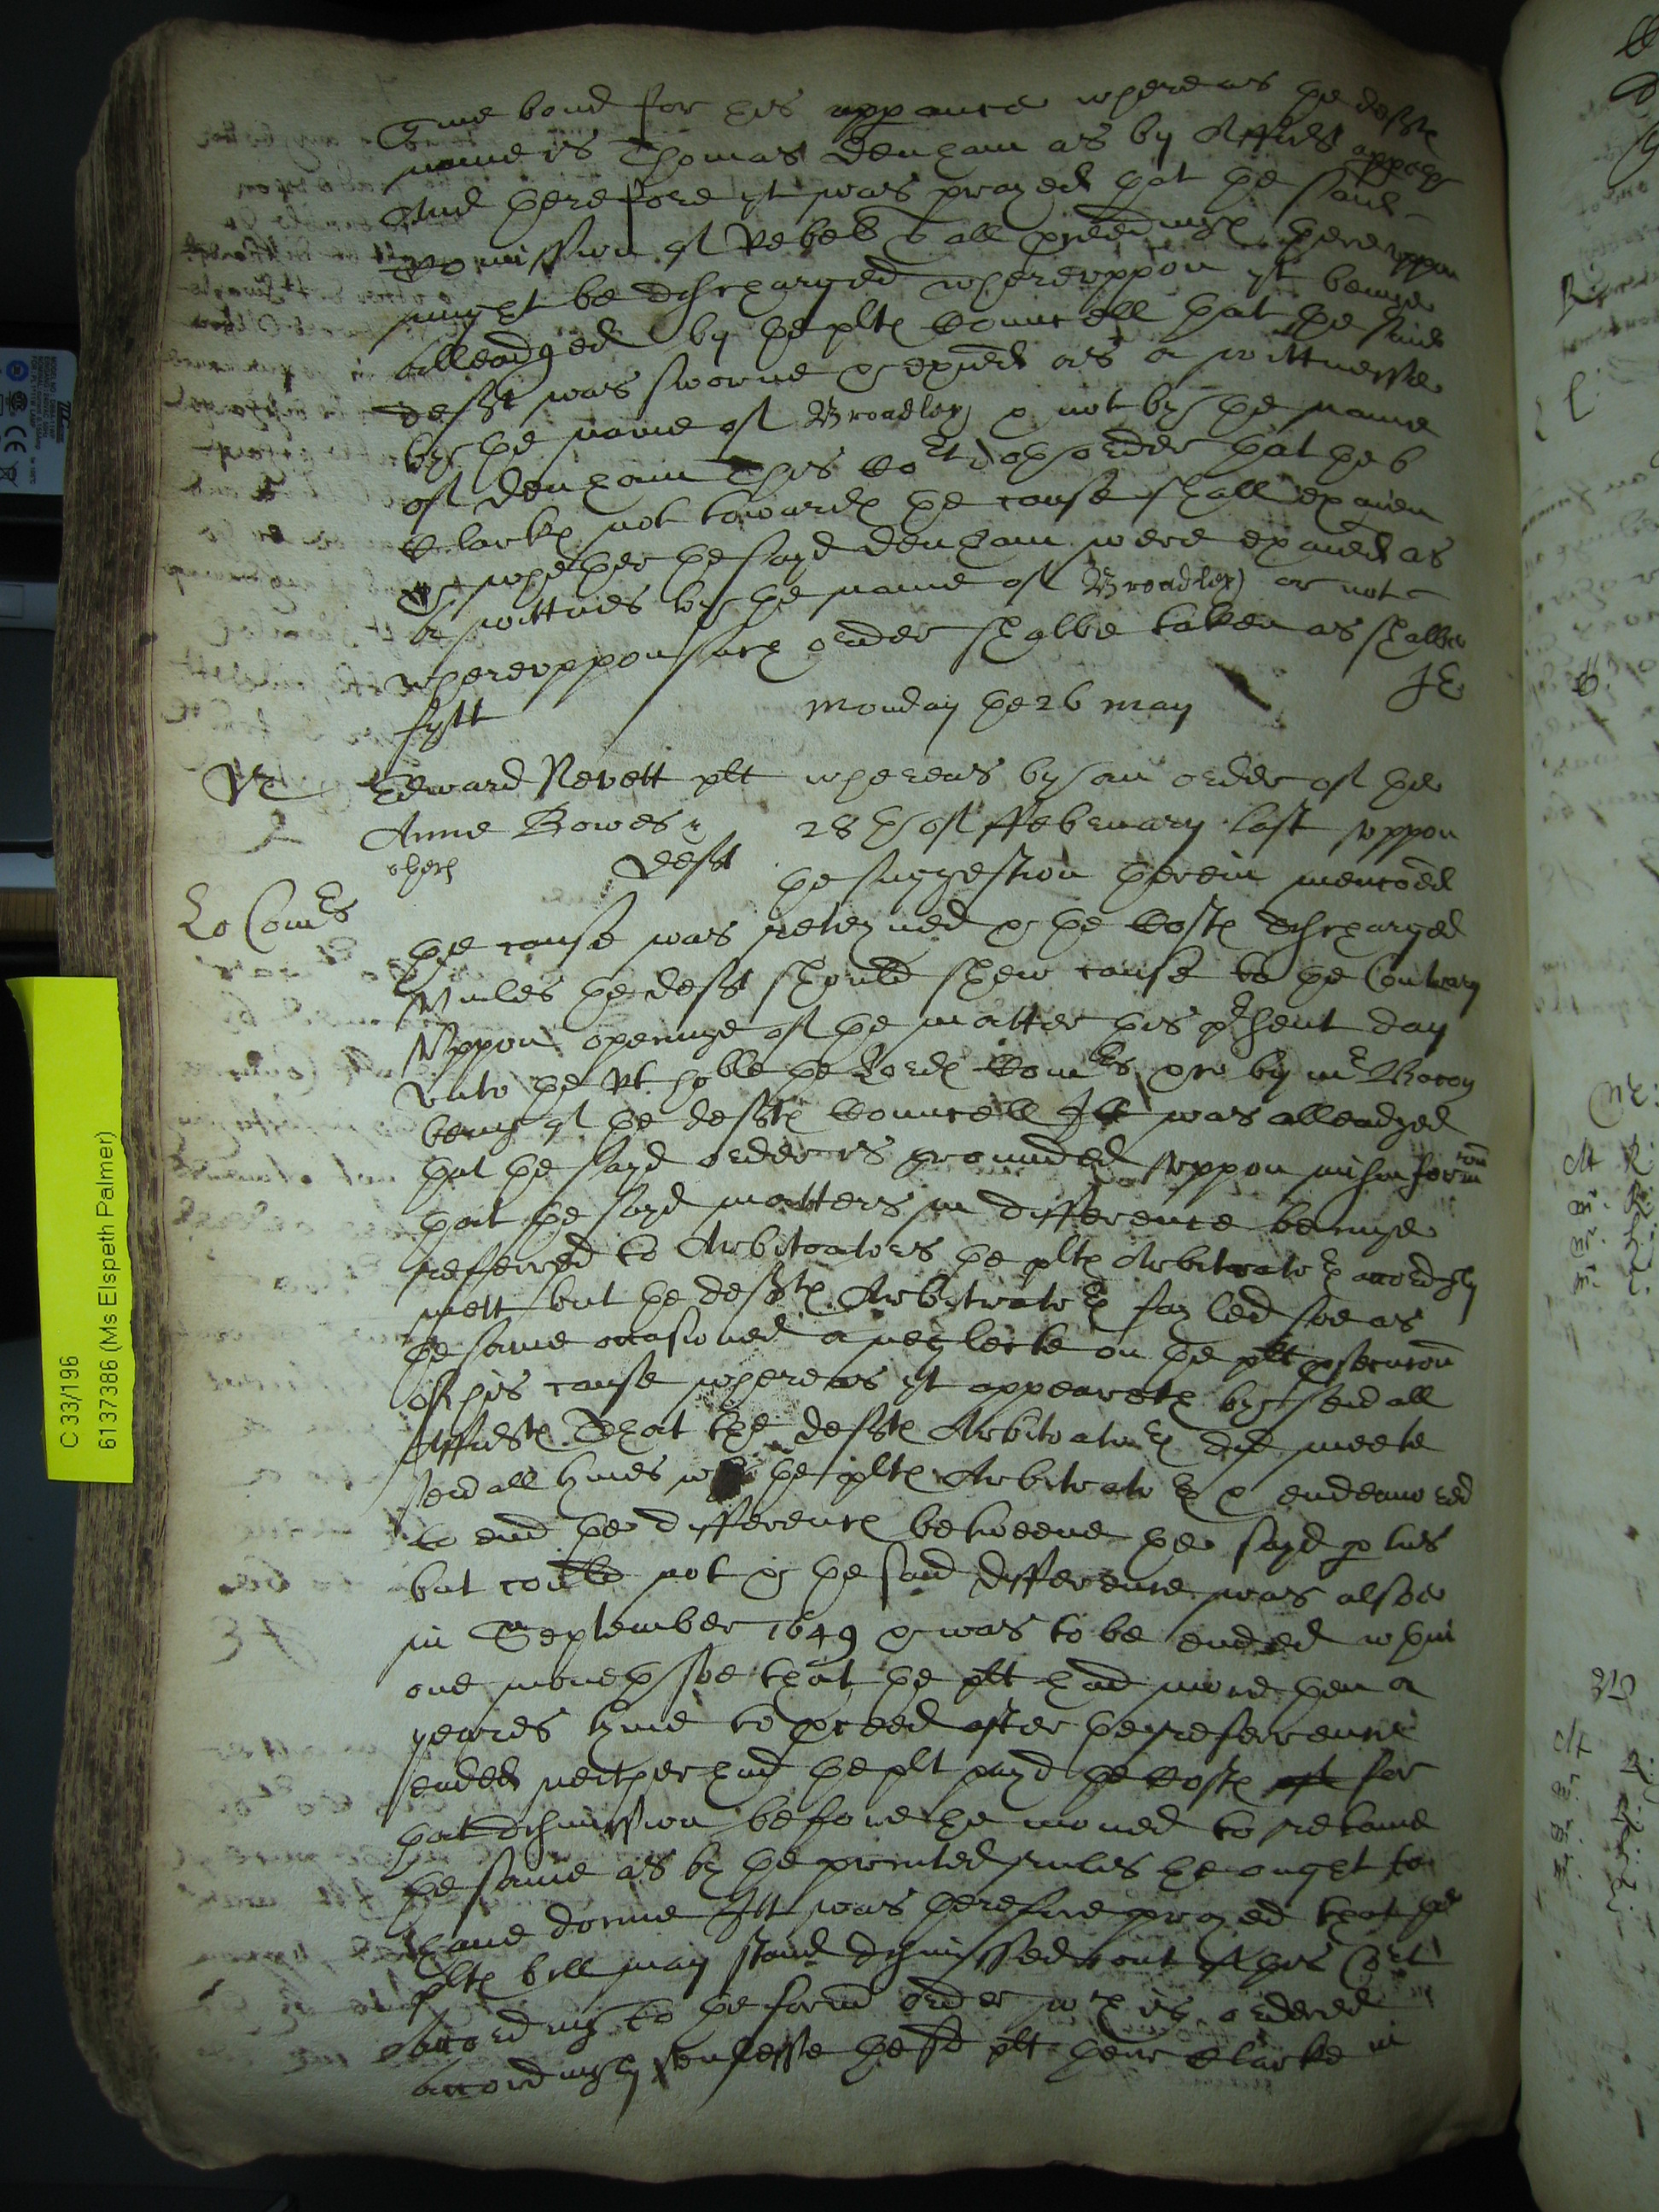 giue bond for his appance whereas the defts
name is Thomas Denham as by Affidt appeareth
And therefore it was prayed that the said
Comission of Rebell & all pceedings therevppon
might be discharged wherevppon it beinge
alleadged by the plts Councell that the said
deft was sworne & exied as a wittnesse
by the name of Broadley & not by the name
of Denham This Cort doth order that the 6
Clarks not towards the cause shall examen
whether the sayd Denham were exaied as
a wittnes by the name of Broadley or not
wherevppon such order shalbe taken as shalbe
fytt
JE
Monday the 26 May
Edward Revett plt
Anne Bowes
deft
Lo Comrs
whereas by an order of the
28th of ffebruary last vppon
the suggestion therein mencoed
the cause was reteyned & the Costs discharged
Vnles the deft should shew cause to the Contrary
Vppon openinge of the matter this psent day
vnto the Rt hoble the Lords Comrs &c by mr Bacon
being of the defts Councell Itt was alleadged
that the sayd order is grounded vppon misinformcon
that the sayd matters in difference beinge
referred to Arbitrators the plts Arbitrators accordingly
mett but the defts Arbitrators fayled soe as
the same occasioned a neglecte on the plt psecucon
of this cause whereas it appeareth by seuall
Affidts That the defts Arbitrators did meete
seuall tymes wth the plts Arbitrators & endeauored
to end the differences betweene the sayd pties
but could not & the said difference was alsoe
in September 1649 & was to be ended within
one moneth soe that the plt had more then a
yeares tyme to pceed after the referrence
ended neither had the plt payd the Costs for
that dismission before he moued to retaine
the same as by the printed rules he ought to
haue donne Itt was therefore prayed that the
plts bill may stand dismissed out of this Cort
according to the formr order wch is ordered
accordingly vnlesse the sd plt their Clarke in
C 33/196
6137386 (Ms Elspeth Palmer)